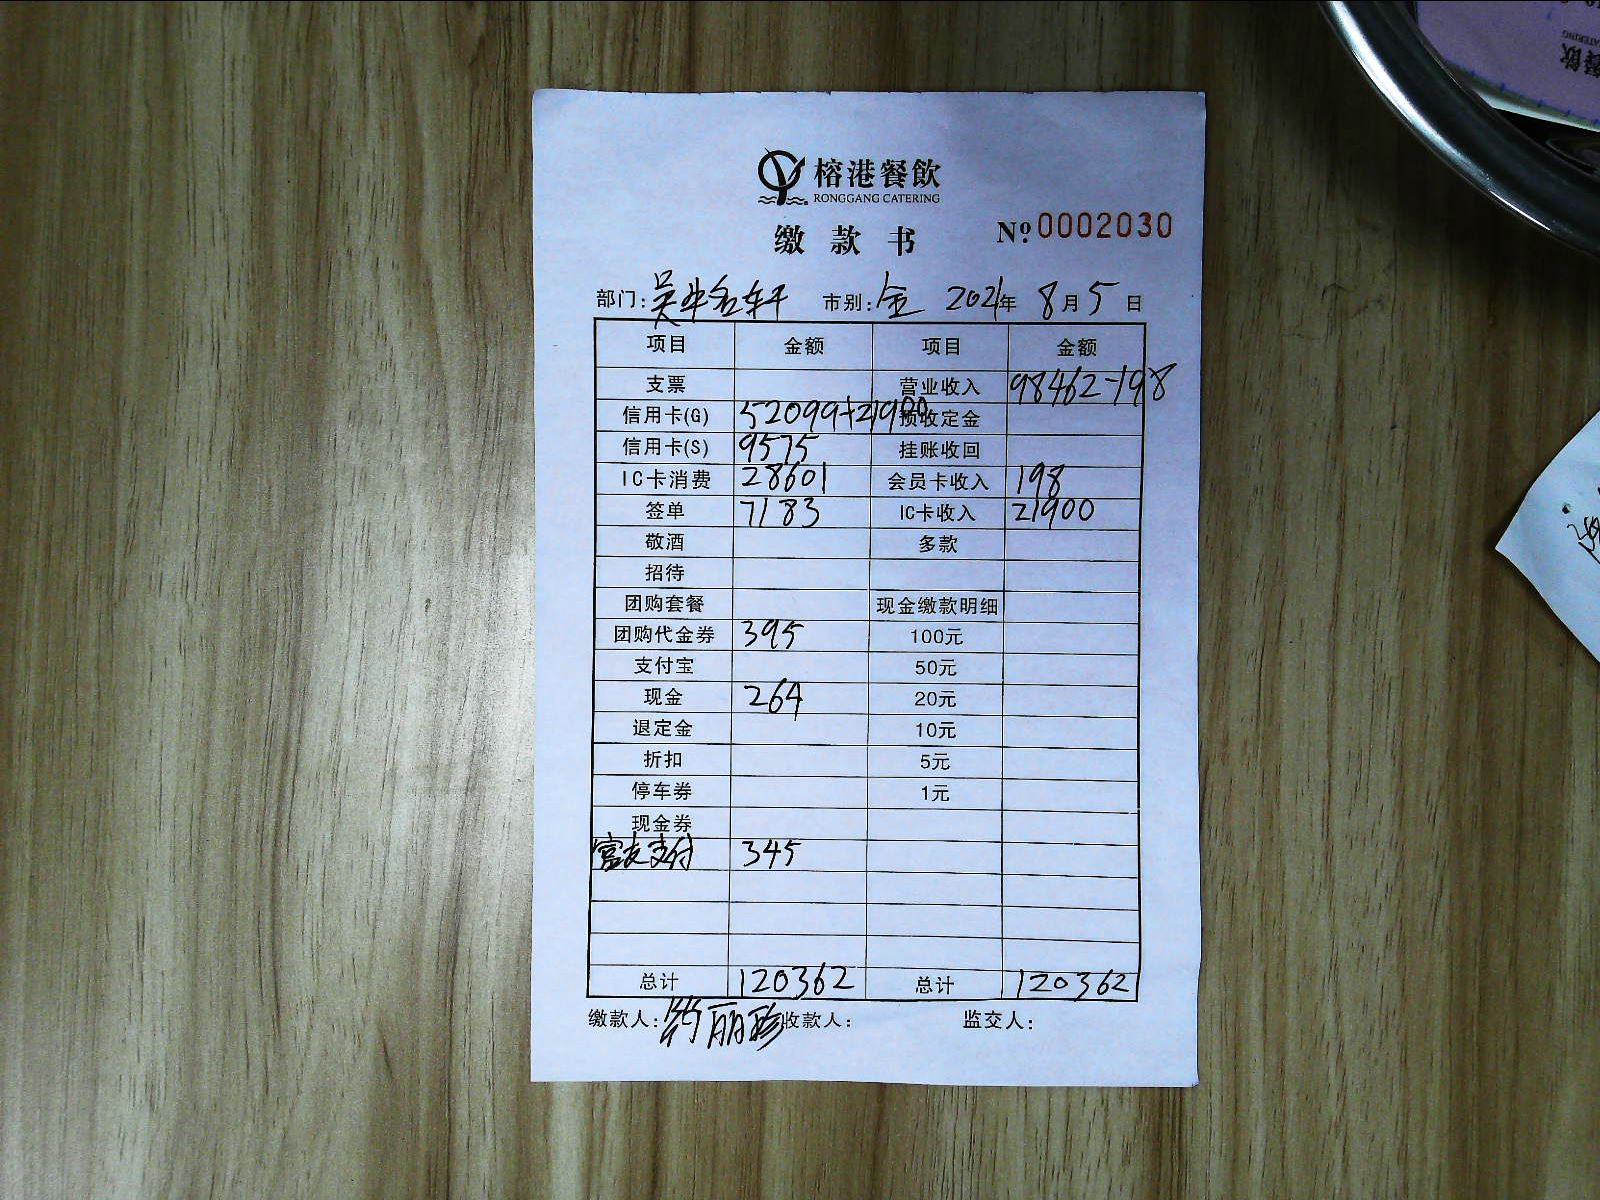 榕港餐飲
RONGGANG CATERING
缴款书 №0002030
部门: 市别:全 2021年8月5日
项目 金额 项目 金额
支票 营业收入 98462-198
信用卡(G) 52099+21900 预收定金
信用卡(S) 9575 挂账收回
IC卡消费 28601 会员卡收入 198
签单 7183 IC卡收入 21900
敬酒 多款
招待
团购套餐 现金缴款明细
团购代金券 395 100元
支付宝 50元
现金 264 20元
退定金 10元
折扣 5元
停车券 1元
现金券
富友支付 345
总计 120362 总计 120362
缴款人: 丽 收款人: 监交人:
餐飲